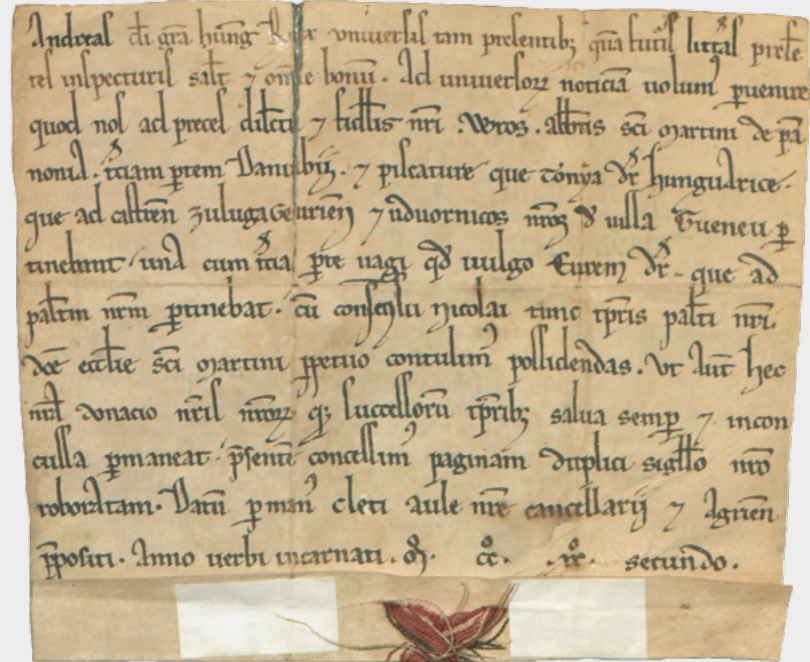 Andreas di gra hung Rex universis tam presentibz qua futuris litteras prese
tes inspecturis salt ⁊ omne bonu. Ad universorz noticia volum' pervenire
quod nos ad preces dilcti ⁊ fidelis nri .Wros. abbtis sci martini de pa
nonia. tciam ptem Danubij. ⁊ piscature que tonya dr hungarice.
que ad castren zuluga ⁊ uduornicos nros d villa Gueneu p
tinebant una cum tcia pte uagi qd vulgo dr. que ad
palatm nrm ptinebat. cu nicolai tunc tpris palati nri.
dce ecclie sci martini ppetuo contulim' possidendas. Ut aut hec
nra donacio nris nrorz qz successoru tpribz salva semp ⁊ incon
cussa pmaneat. psente concessim' paginam duplici sigillo nro
roboratam. Datu p man' cleti aule nre cancellarij ⁊ Agrien
ppositi. Anno verbi incarnati. M. cc. xx. secundo.